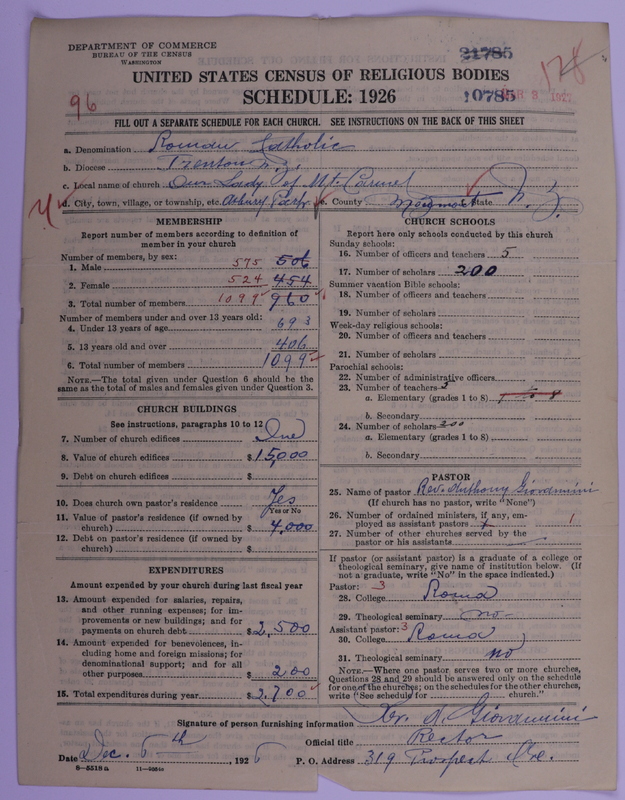 DEPARTMENT OF COMMERCE
BUREAU OF THE CENSUS
WASHINGTON
21785
178
96
UNITED STATES CENSUS OF RELIGIOUS BODIES
SCHEDULE: 1926
10785
FILL OUT A SEPARATE SCHEDULE FOR EACH CHURCH. SEE INSTRUCTIONS ON THE BACK OF THIS SHEET
a. Denomination Roman Catholic
b. Diocese Trenton N. J.
c. Local name of church Our Lady of Mt. Carmel
d. City, town, village, or township, etc. Asbury Park e. County Monmouth State N. J.
MEMBERSHIP
Report number of members according to definition of
member in your church
Number of members, by sex:
1. Male 575 506
2. Female 524 454
3. Total number of members 1099 960
Number of members under and over 13 years old:
4. Under 13 years of age 693
5. 13 years old and over 406
6. Total number of members 1099
NOTE.—The total given under Question 6 should be
same as the total of males and females given under Question 3.
CHURCH BUILDINGS
See instructions, paragraphs 10 to 12
7. Number of church edifices One
8. Value of church edifices $15,000
9. Debt on church edifices $
10. Does church own pastor's residence Yes
Yes or No
11. Value of pastor's residence (if owned by
church) $ 4,000
12. Debt on pastor's residence (if owned by
church) $
EXPENDITURES
Amount expended by your church during last fiscal year
13. Amount expended for salaries, repairs,
and other running expenses; for im-
provements or new buildings; and for
payments on church debt $2,500
14. Amount expended for benevolences, in-
cluding home and foreign missions; for
denominational support; and for all
other purposes $ 200
15. Total expenditures during year $2,700
CHURCH SCHOOLS
Report here only schools conducted by this church
Sunday schools:
16. Number of officers and teachers 5
17. Number of scholars 200
Summer vacation Bible schools:
18. Number of officers and teachers
19. Number of scholars
Week-day religious schools:
20. Number of officers and teachers
21. Number of scholars
Parochial schools:
22. Number of administrative officers
23. Number of teachers
a. Elementary (grades 1 to 8)
b. Secondary
24. Number of scholars 200
a. Elementary (grades 1 to 8)
b. Secondary
PASTOR
25. Name of pastor Rev. Anthony Giovannini
(If church has no pastor, write "None")
26. Number of ordained ministers, if any, em-
ployed as assistant pastors 1
27. Number of other churches served by the
pastor or his assistants
If pastor (or assistant pastor) is a graduate of a college or
theological seminary, give name of institution below. (If
not a graduate, write "No" in the space indicated.)
Pastor: 3
28. College Roma
29. Theological seminary no
Assistant pastor: 3
30. College Roma
31. Theological seminary no
NOTE.—Where one pastor serves two or more churches,
Questions 28 and 29 should be answered only on the schedule
for one of the churches; on the schedules for the other churches,
write "See schedule for church."
Signature of person furnishing information Rev. A. Giovannini
Official title Rector
Date Dec. 6th, 1926 P. O. Address 319 Prospect Ave.
6—5518a 11—9684a